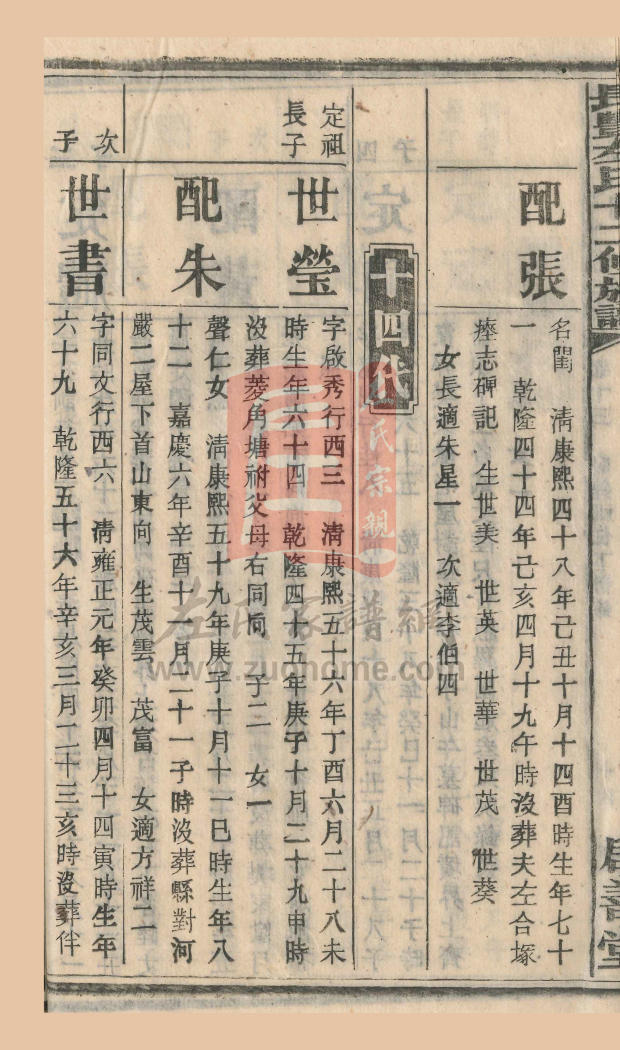 長豐左氏十二修族譜
展書堂
配張
名閨 清康熙四十八年己丑十月十四酉時生年七十
一 乾隆四十四年己亥四月十九午時沒葬夫左合塚
瘞志碑記 生世美 世英 世華 世茂 世葵
女長適朱星一 次適李伯四
十四代
定祖
長子
世瑩
字啟秀行西三 清康熙五十六年丁酉六月二十八未
時生年六十四 乾隆四十五年庚子十月二十九申時
沒葬菱角塘祔父母右同向 子二 女一
配朱
聲仁女 清康熙五十九年庚子十月十一巳時生年八
十二 嘉慶六年辛酉十一月二十一子時沒葬縣對河
嚴二屋下首山東向 生茂雲 茂富 女適方祥二
次
子
世書
字同文行西六 清雍正元年癸卯四月十四寅時生年
六十九 乾隆五十六年辛亥三月二十三亥時沒葬伴
左氏家譜網
www.zuohome.com
氏宗親